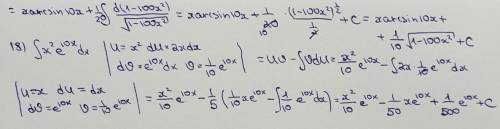 = x arcsin10x + 1/20 ∫ d(1-100x²)/√(1-100x²) = x arcsin10x + 1/20 · (1-100x²)^(1/2)/(1/2) + C = x arcsin10x +
+ 1/10 √(1-100x²) + C
18) ∫x²e^(10x)dx | u=x² du=2xdx dv=e^(10x)dx v=1/10 e^(10x) | = uv - ∫vdu = x²/10 e^(10x) - ∫2x·1/10 e^(10x)dx
| u=x du=dx dv=e^(10x) v=1/10 e^(10x) | = x²/10 e^(10x) - 1/5 (1/10 xe^(10x) - ∫1/10 e^(10x)dx) = x²/10 e^(10x) - 1/50 xe^(10x) + 1/500 e^(10x) + C